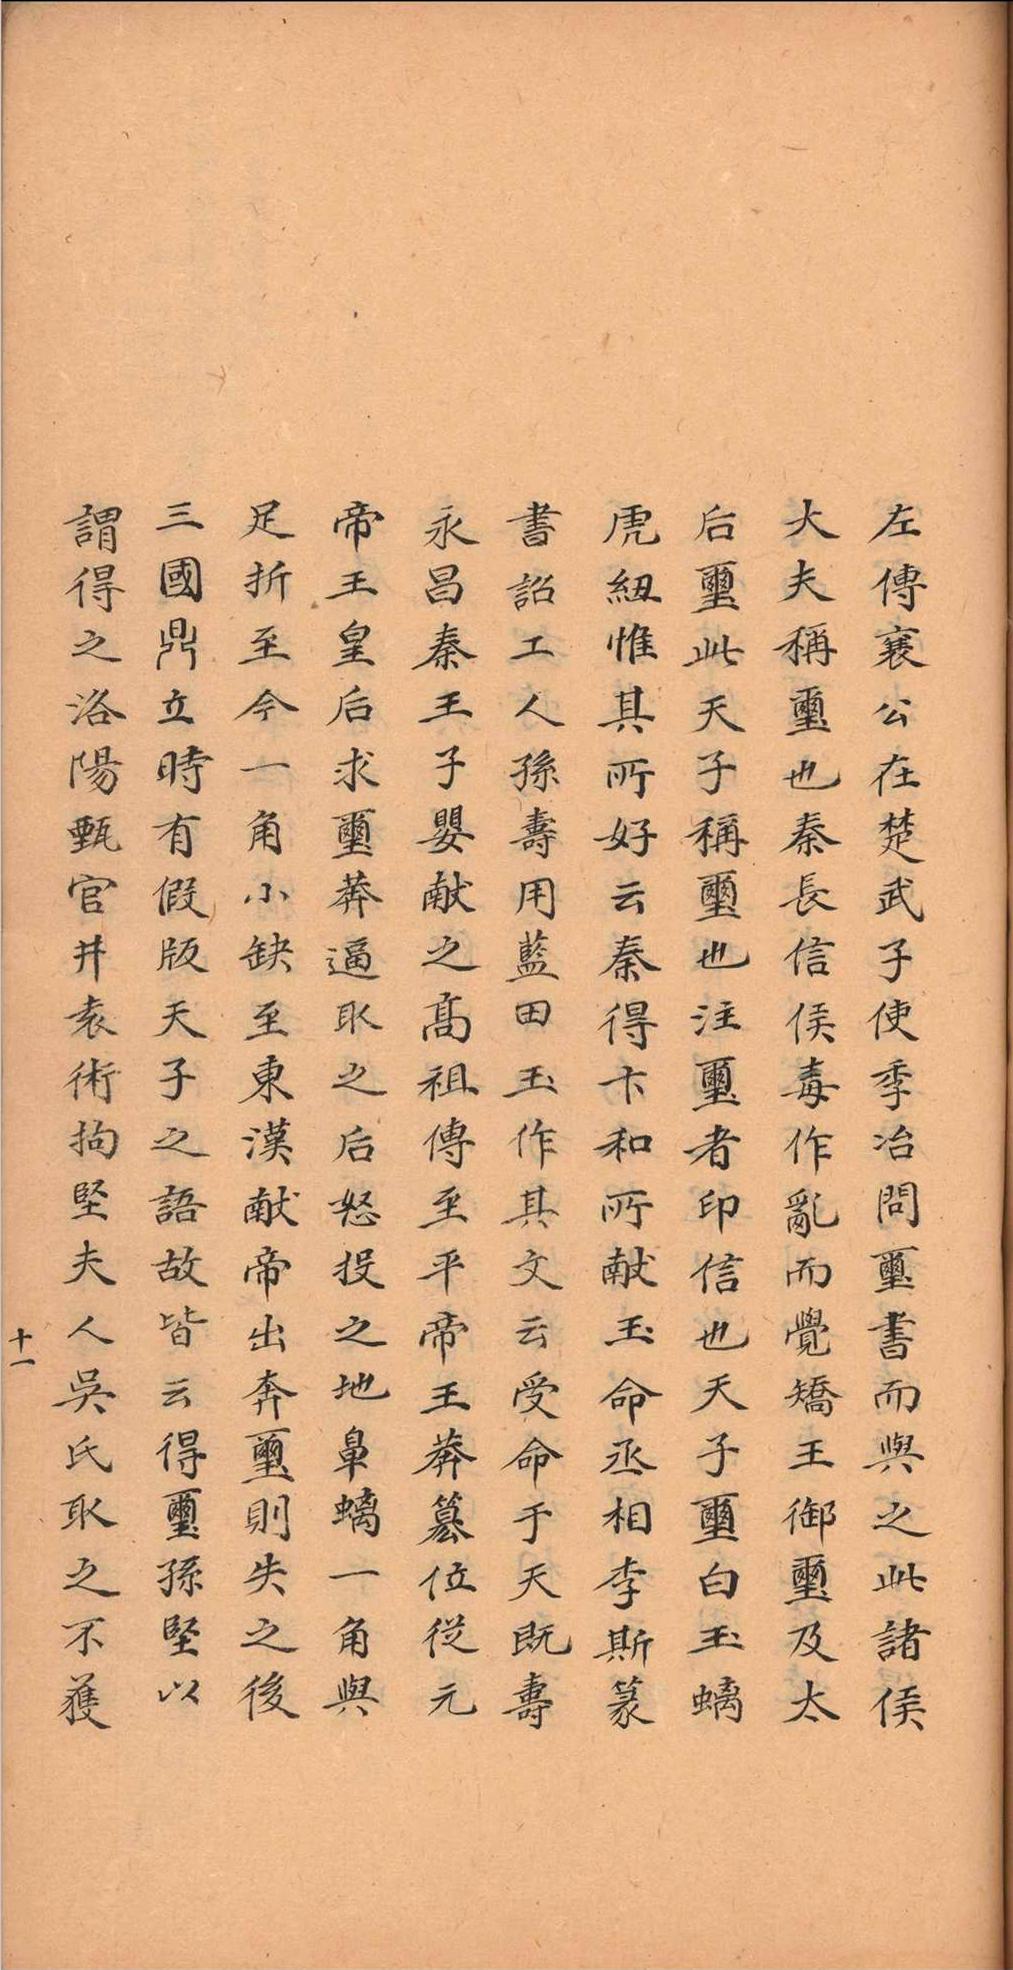 左傳襄公在楚武子使季冶問璽書而與之此諸侯
大夫稱璽也秦長信侯毐作亂而覺矯王御璽及太
后璽此天子稱璽也注璽者印信也天子璽白玉螭
虎紐惟其所好云秦得卞和所献玉命丞相李斯篆
書詔工人孫壽用藍田玉作其文云受命于天既壽
永昌秦王子嬰献之高祖傳至平帝王莽篡位從元
帝王皇后求璽莽逼取之后怒投之地鼻螭一角與
足折至今一角小缺至東漢献帝出奔璽則失之後
三國鼎立時有假版天子之語故皆云得璽孫堅以
謂得之洛陽甄官井袁術拘堅夫人吳氏取之不獲
十一